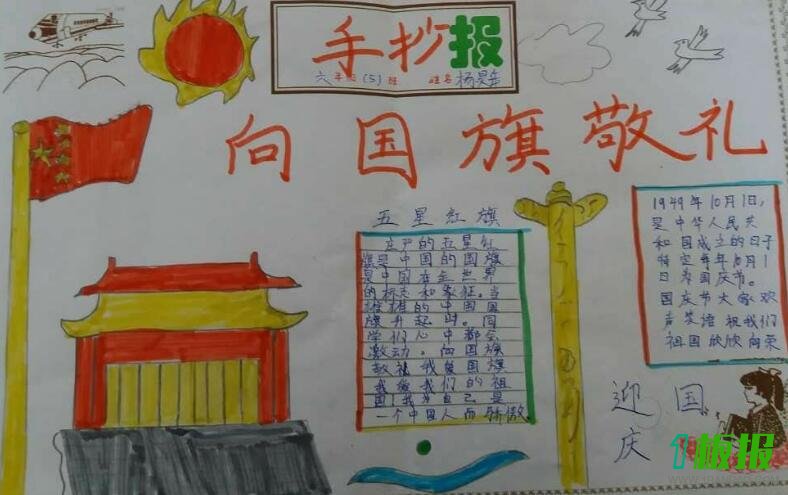 手抄报
六年级（5）班 姓名 杨
向国旗敬礼
五星红旗
庄严的五星红
旗是中国的国旗
是中国在全世界
的标志和象征。当
雄雄的中国国
旗升起时。同
学们心中都会
激动。向国旗
敬礼 我爱国旗
我爱我们的祖
国 我为自己是
一个中国人而骄傲
1949年10月1日，
是中华人民共
和国成立的日子
特定每年10月1
日为国庆节。
国庆节大家欢
声笑语 祝我们
祖国欣欣向荣
迎国
庆
1板报